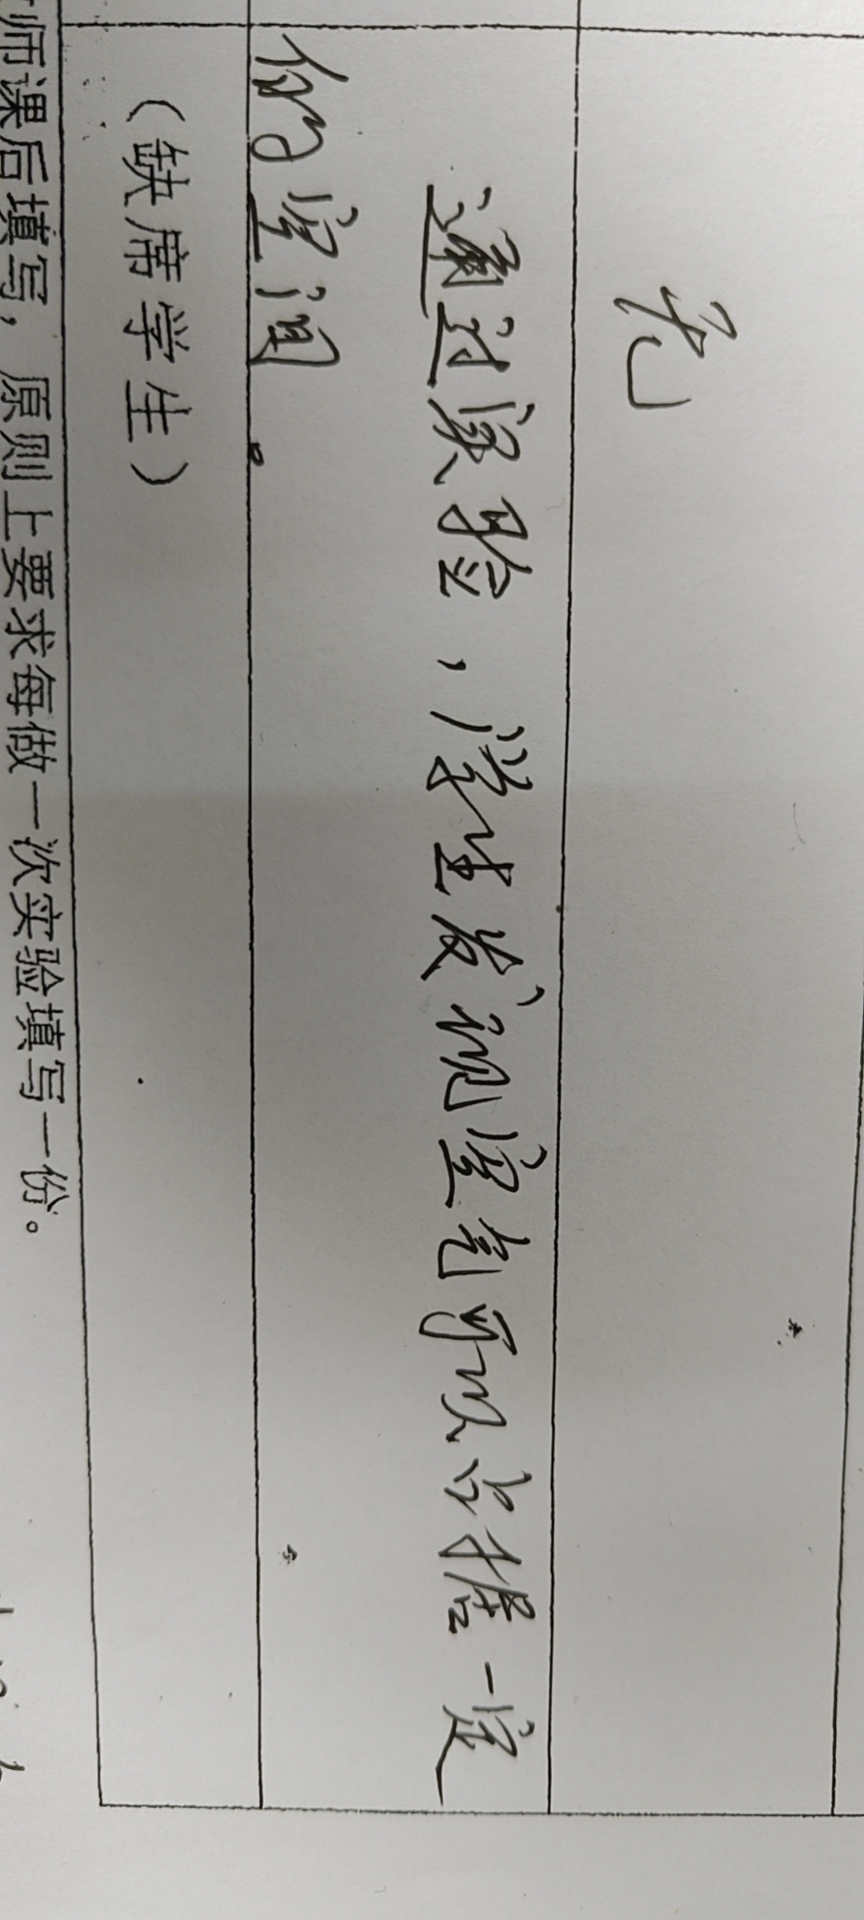 无
通过实验，学生发现空气可以占据一定
的空间。
（缺席学生）
师课后填写，原则上要求每做一次实验填写一份。